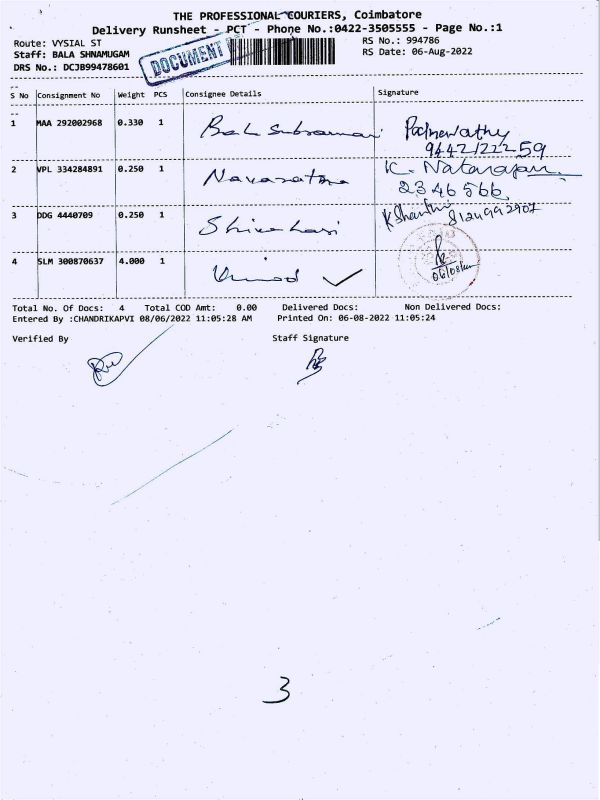 THE PROFESSIONAL COURIERS, Coimbatore
Delivery Runsheet - PCT - Phone No.:0422-3505555 - Page No.:1
Route: VYSIAL ST
RS No.: 994786
Staff: BALA SHNAMUGAM
DOCUMENT
RS Date: 06-Aug-2022
DRS No.: DCJB99478601
S No Consignment No Weight PCS Consignee Details Signature
1 MAA 292002968 0.330 1 Balasubramani Padmavathy
9442122259
2 VPL 334284891 0.250 1 Navaratna K. Natarajan
2346566
3 DDG 4440709 0.250 1 Shivahari K Shanthi 8124992907
4 SLM 300870637 4.000 1 Vinod ✓
Total No. Of Docs: 4 Total COD Amt: 0.00 Delivered Docs: Non Delivered Docs:
Entered By :CHANDRIKAPVI 08/06/2022 11:05:28 AM Printed On: 06-08-2022 11:05:24
Verified By Staff Signature
3